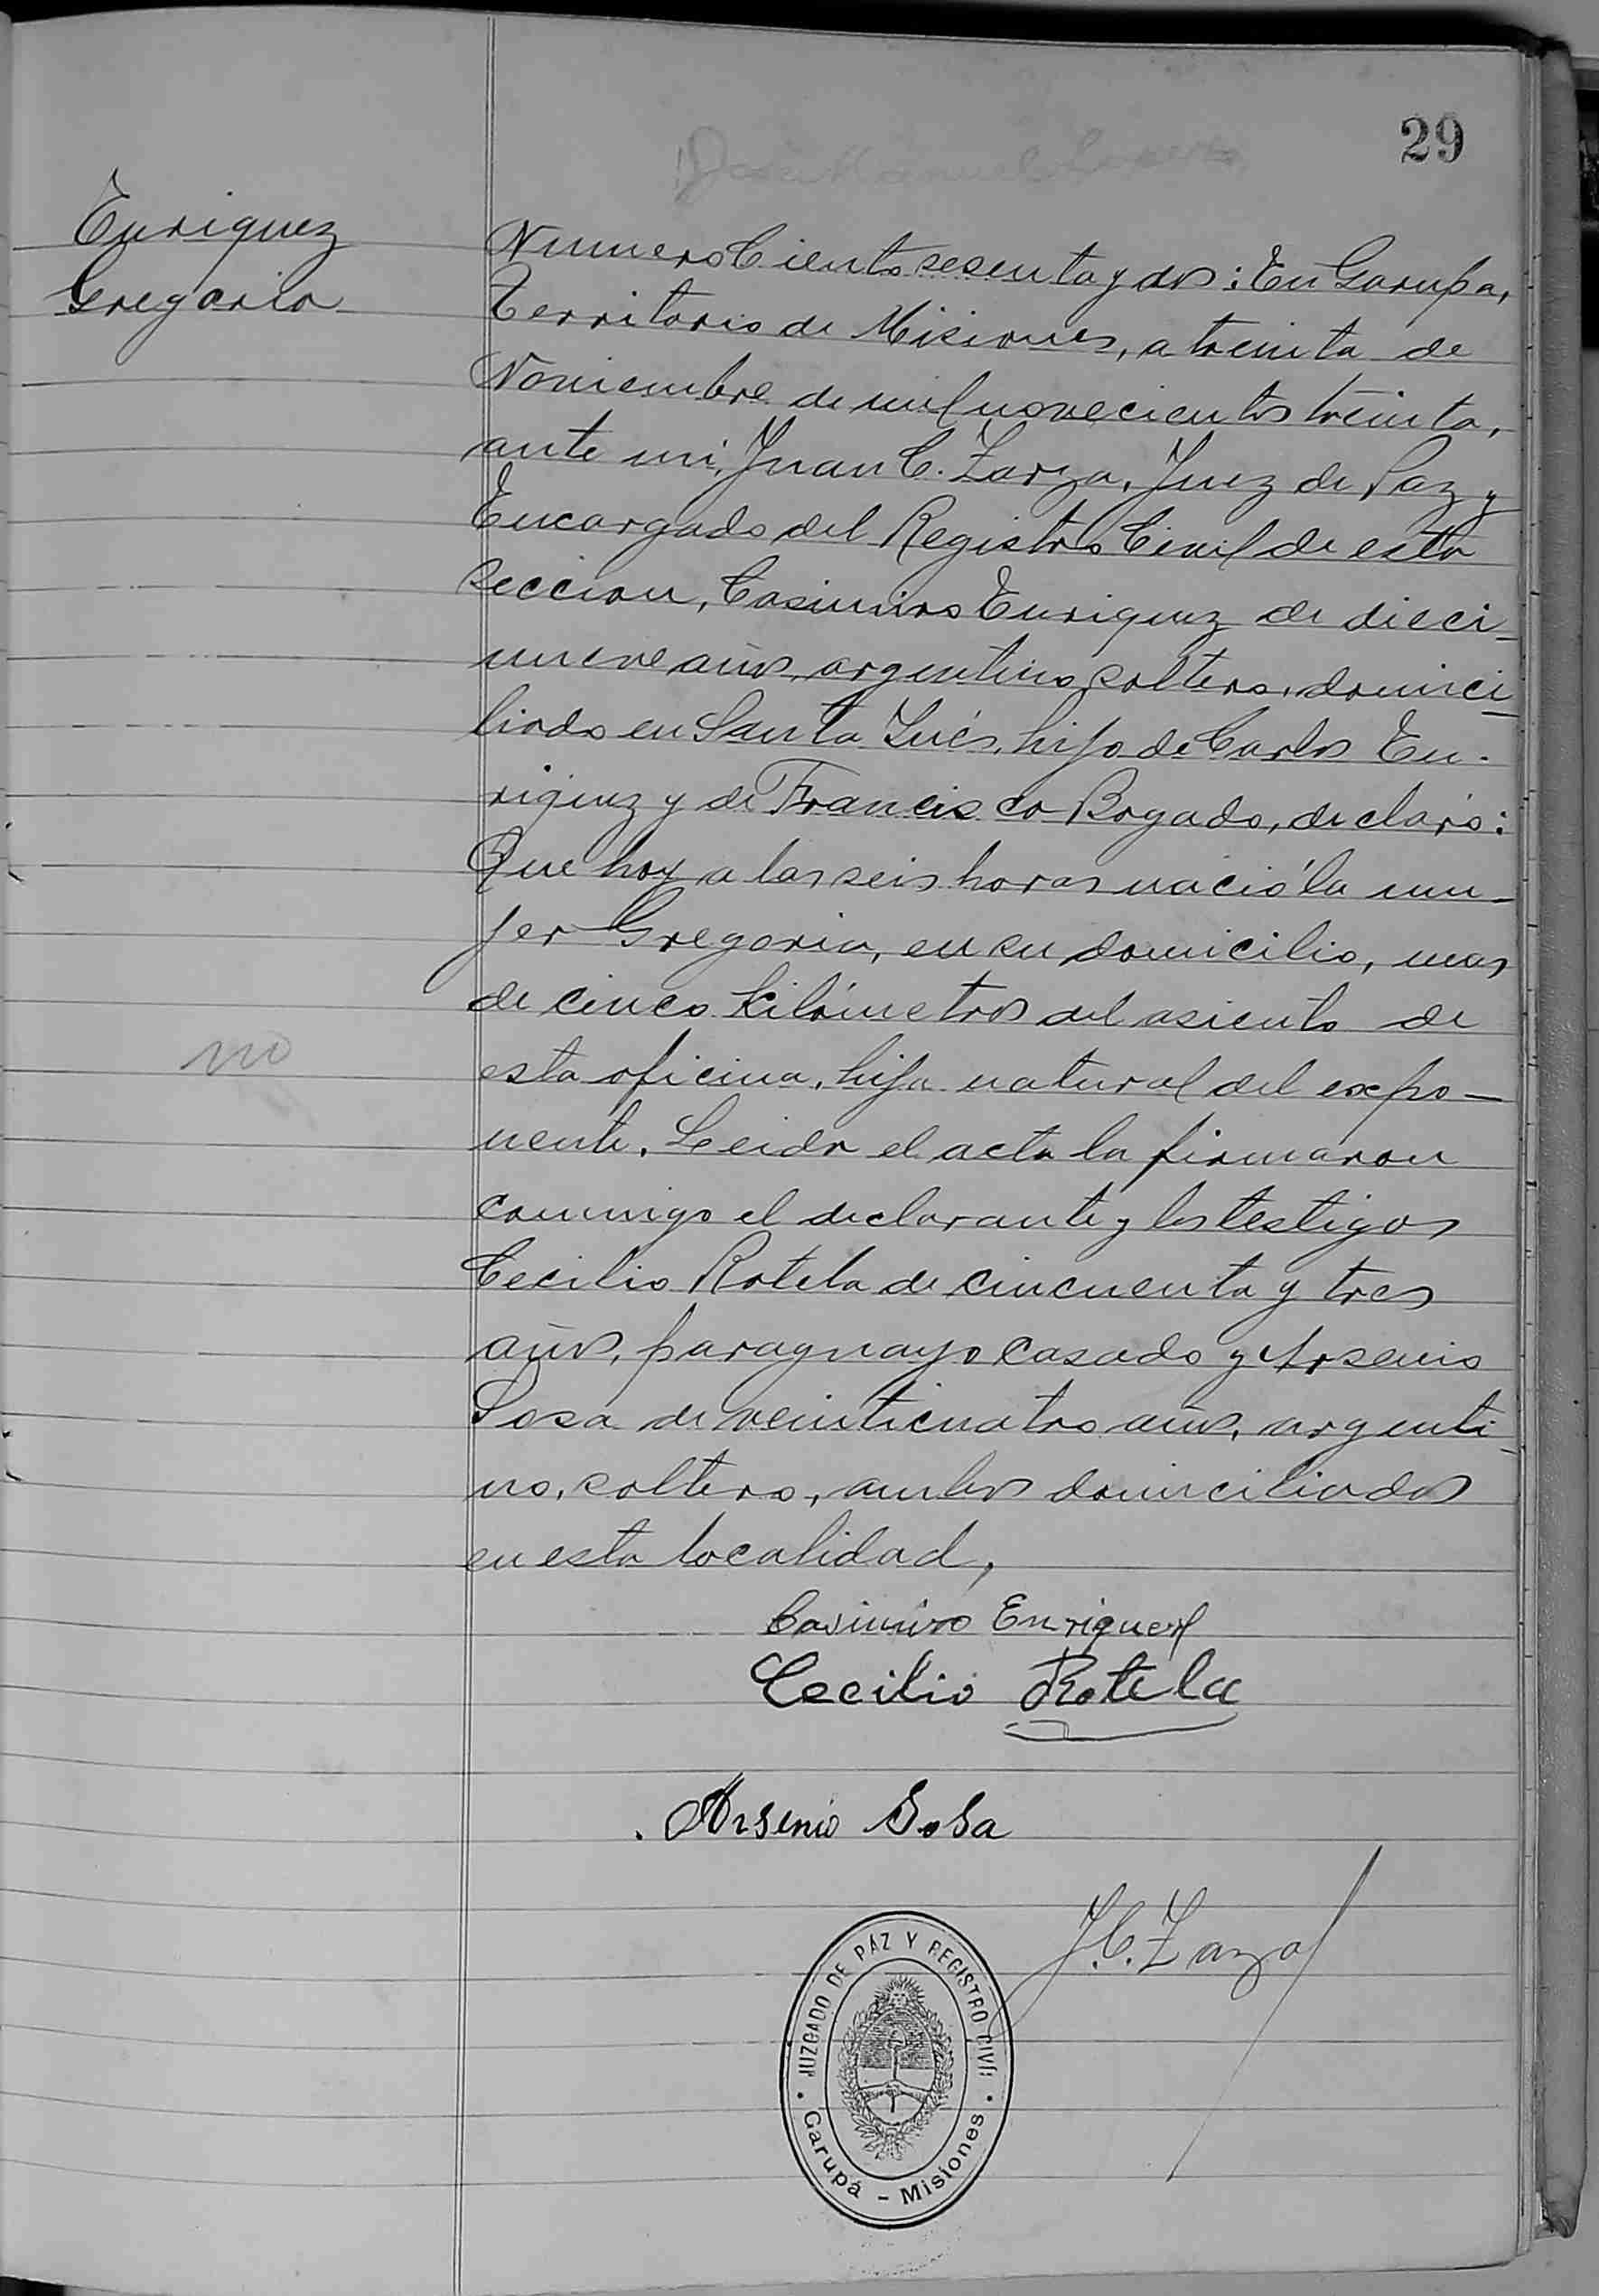 29
Enriquez
Gregoria
Numero Ciento sesenta y dos: En Garupa,
Territorio de Misiones, a treinta de
Noviembre de mil novecientos treinta,
ante mi, Juan C. Zarza, Juez de Paz y
Encargado del Registro Civil de esta
seccion, Casimiro Enriquez de dieci-
nueve años, argentino, soltero, domici-
liado en Santa Inés, hijo de Carlos En-
riquez y de Francisca Bogado, declaró:
Que hoy a las seis horas nació la mu-
jer Gregoria, en su domicilio, mas
de cinco kilómetros del asiento de
esta oficina, hija natural del expo-
nente. Leida el acta la firmaron
conmigo el declarante y los testigos
Cecilio Rotela de cincuenta y tres
años, paraguayo casado y Arsenio
Sosa de veinticuatro años, argenti-
no, soltero, ambos domiciliados
en esta localidad,
no
Casimiro Enriquez
Cecilio Rotela
Arsenio Sosa
J.C. Zarza
JUZGADO DE PAZ Y REGISTRO CIVIL
Garupá - Misiones